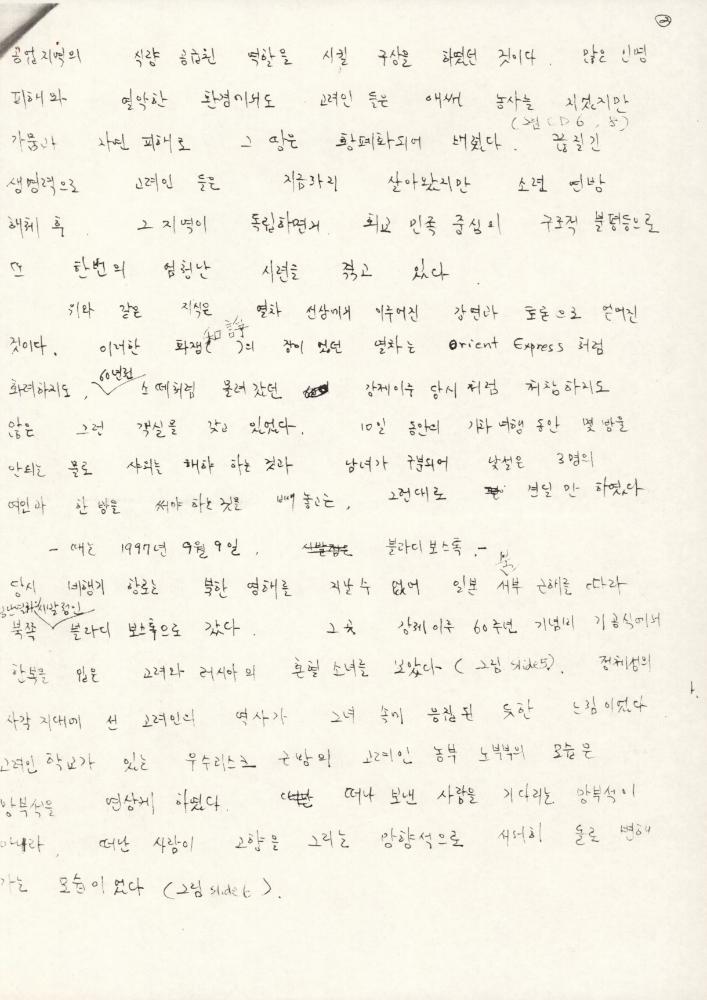 ②
공업지역의 식량 공급원 역할을 시킬 구상을 하였던 것이다. 많은 인명
피해와 열악한 환경에서도 고려인 들은 애써 농사를 지었지만
(그림 CD 6, 8)
가뭄과 자연 피해로 그 땅은 황폐화되어 버렸다. 끈질긴
생명력으로 고려인 들은 지금까지 살아왔지만 소련 연방
해체 후 그 지역이 독립하면서 회교 민족 중심의 구조적 불평등으로
또 한번의 엄청난 시련을 겪고 있다
위와 같은 지식은 열차 선상에서 이루어진 강연과 토론으로 얻어진
것이다. 이러한 화쟁(和諍)의 장이 었던 열차는 Orient Express 처럼
화려하지도, 60년전 소떼처럼 몰려 갔던 강제이주 당시 처럼 처참하지도
않은 그런 객실을 갖고 있었다. 10일 동안의 기차 여행 동안 몇 방울
안되는 물로 샤워는 해야 하는 것과 남녀가 구분되어 낯설은 3명의
여인과 한 방을 써야 하는 것을 빼 놓고는, 그런대로 견딜 만 하였다
- 때는 1997년 9월 9일, 시발점은 블라디보스톡. -
당시 비행기 항로는 북한 영해를 지날 수 없어 일본 서부 근해를 따라
북쪽 시발점인 블라디 보스톡으로 갔다. 그 곳 강제이주 60주년 기념비 기공식에서
한복을 입은 고려와 러시아의 혼혈 소녀를 보았다 (그림 slide5). 정체성의
사각 지대에 선 고려인의 역사가 그녀 속에 응집된 듯한 느낌이었다
고려인 학교가 있는 우수리스크 근방의 고려인 농부 노부부의 모습은
망부석을 연상케 하였다. 떠나 보낸 사람을 기다리는 망부석이
아니라, 떠난 사람이 고향을 그리는 망향석으로 서서히 돌로 변해
가는 모습이었다 (그림 slide 6).